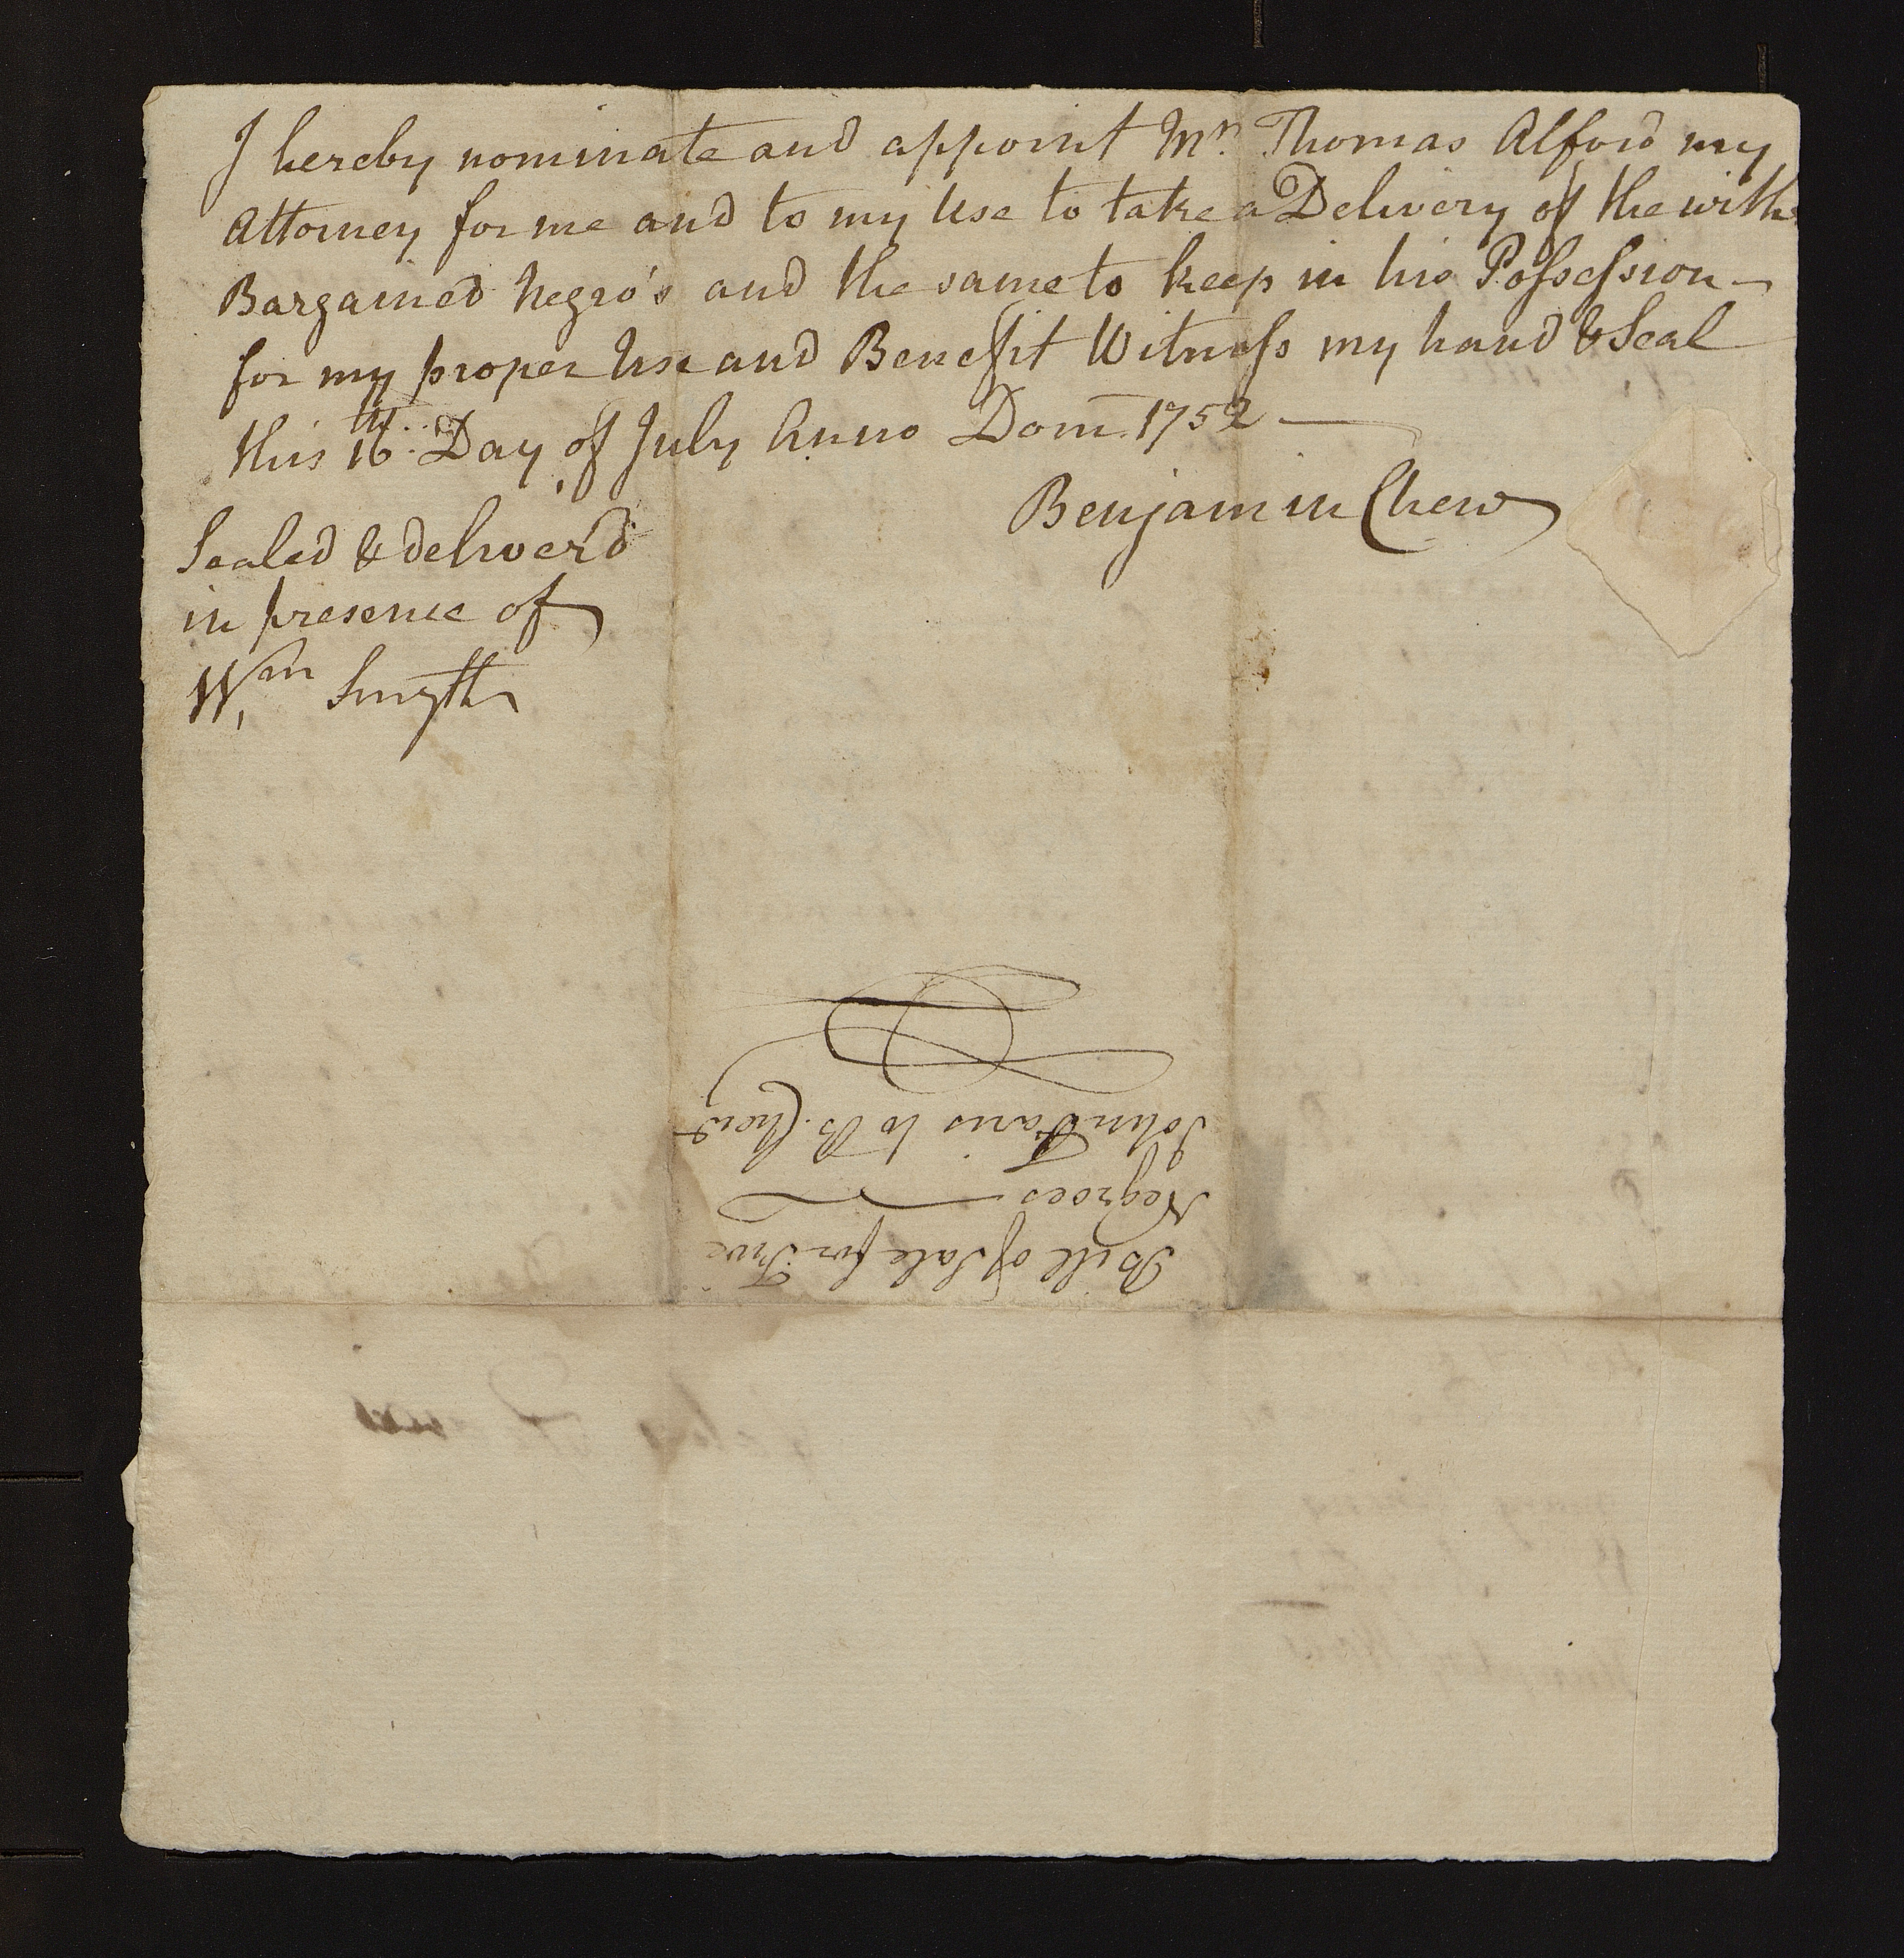 I hereby nominate and appoint Mr. Thomas Alford my
Attorney for me and to my Use to take a Delivery of the with
Bargained Negro's and the same to keep in his Possession —
for my proper Use and Benefit Witness my hand & Seal
this 16th. Day of July Anno Dom. 1752 —
Benjamin Chew
Sealed & deliver'd
in presence of
Wm Smyth
Bill of Sale for Five
Negroes
John Faris to B. Chew